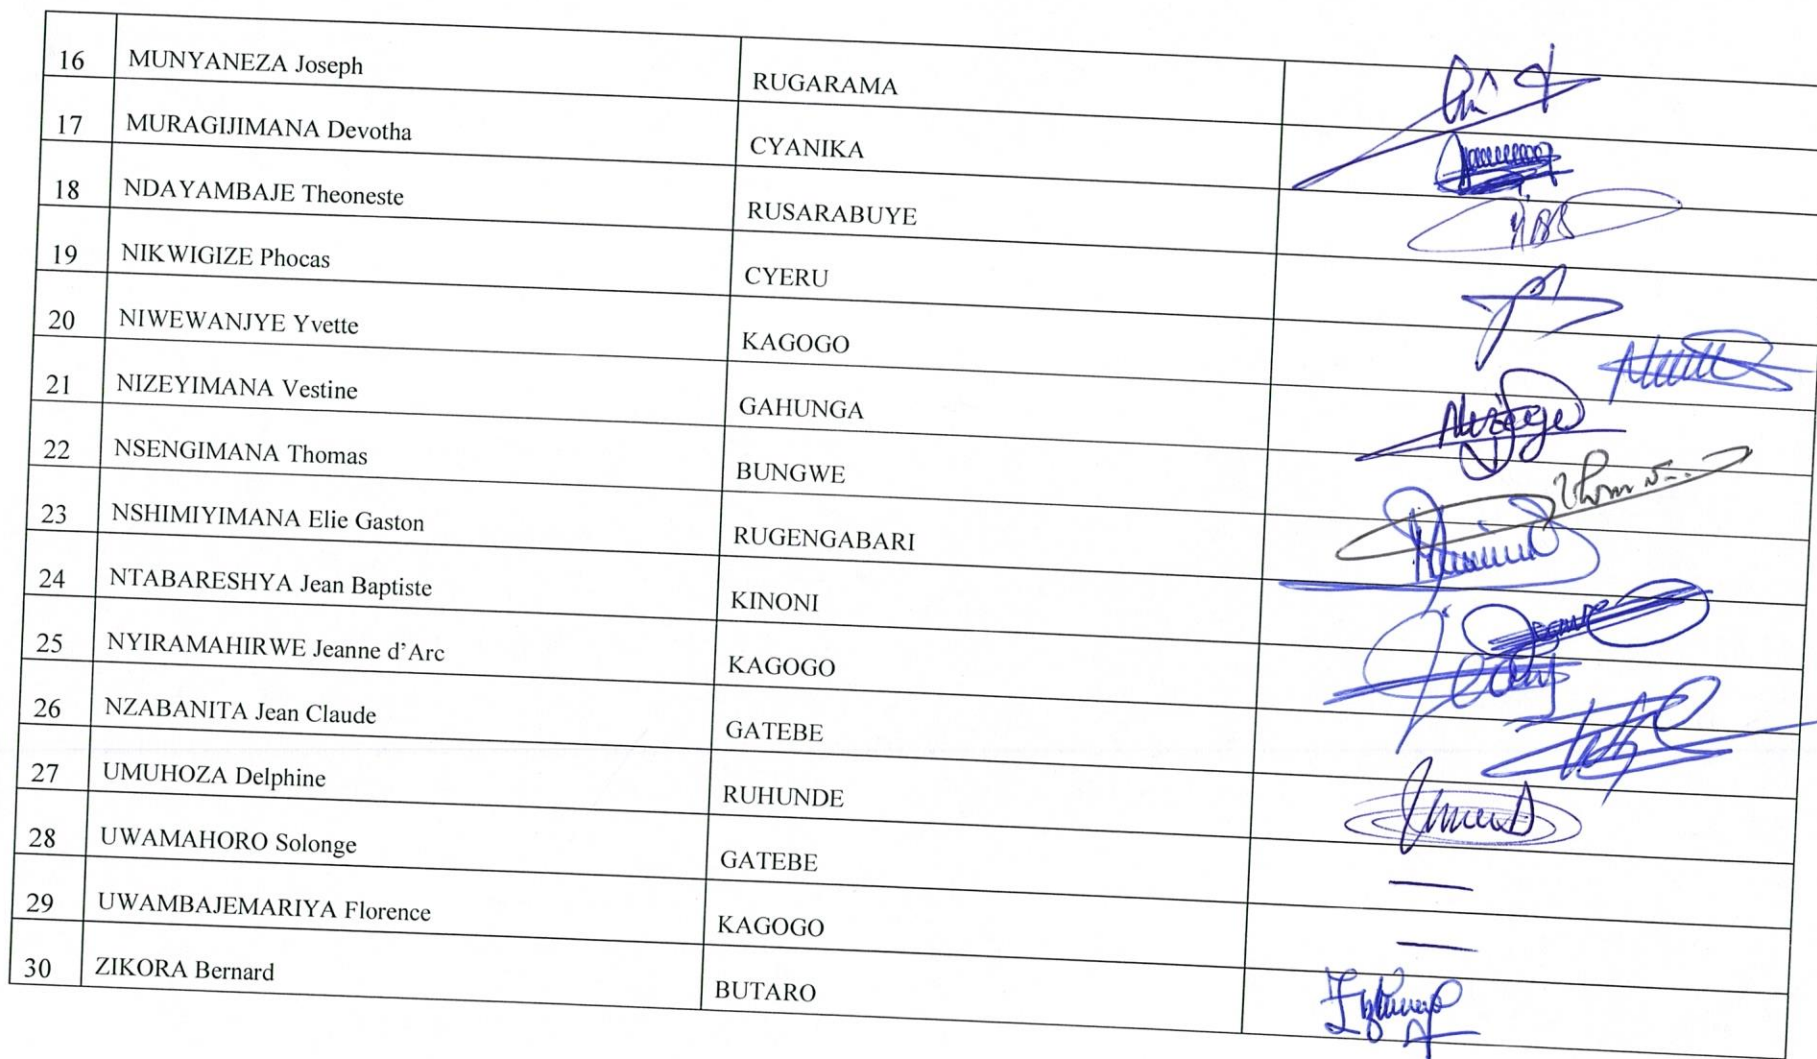 16 MUNYANEZA Joseph RUGARAMA
17 MURAGIJIMANA Devotha CYANIKA
18 NDAYAMBAJE Theoneste RUSARABUYE
19 NIKWIGIZE Phocas CYERU
20 NIWEWANJYE Yvette KAGOGO
21 NIZEYIMANA Vestine GAHUNGA
22 NSENGIMANA Thomas BUNGWE
23 NSHIMIYIMANA Elie Gaston RUGENGABARI
24 NTABARESHYA Jean Baptiste KINONI
25 NYIRAMAHIRWE Jeanne d’Arc KAGOGO
26 NZABANITA Jean Claude GATEBE
27 UMUHOZA Delphine RUHUNDE
28 UWAMAHORO Solonge GATEBE —
29 UWAMBAJEMARIYA Florence KAGOGO —
30 ZIKORA Bernard BUTARO